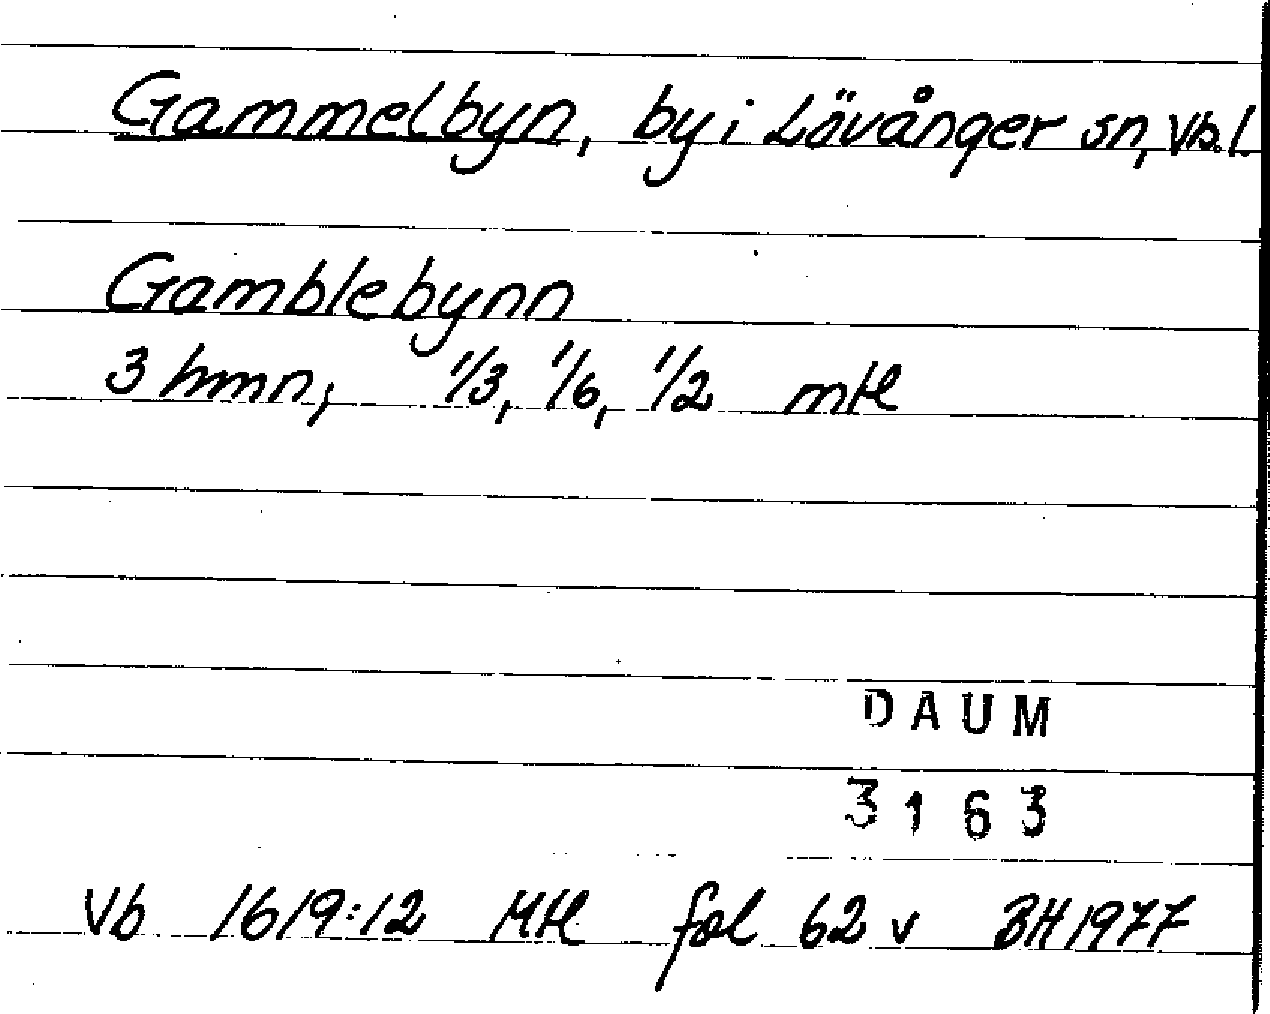 Gammelbyn, by i Lövånger sn, Vb.l.
Gamblebynn
3 hmn; 1/3, 1/6, 1/2 mtl
DAUM
3163
Vb 1619:12 Mtl fol 62 v BH 1977